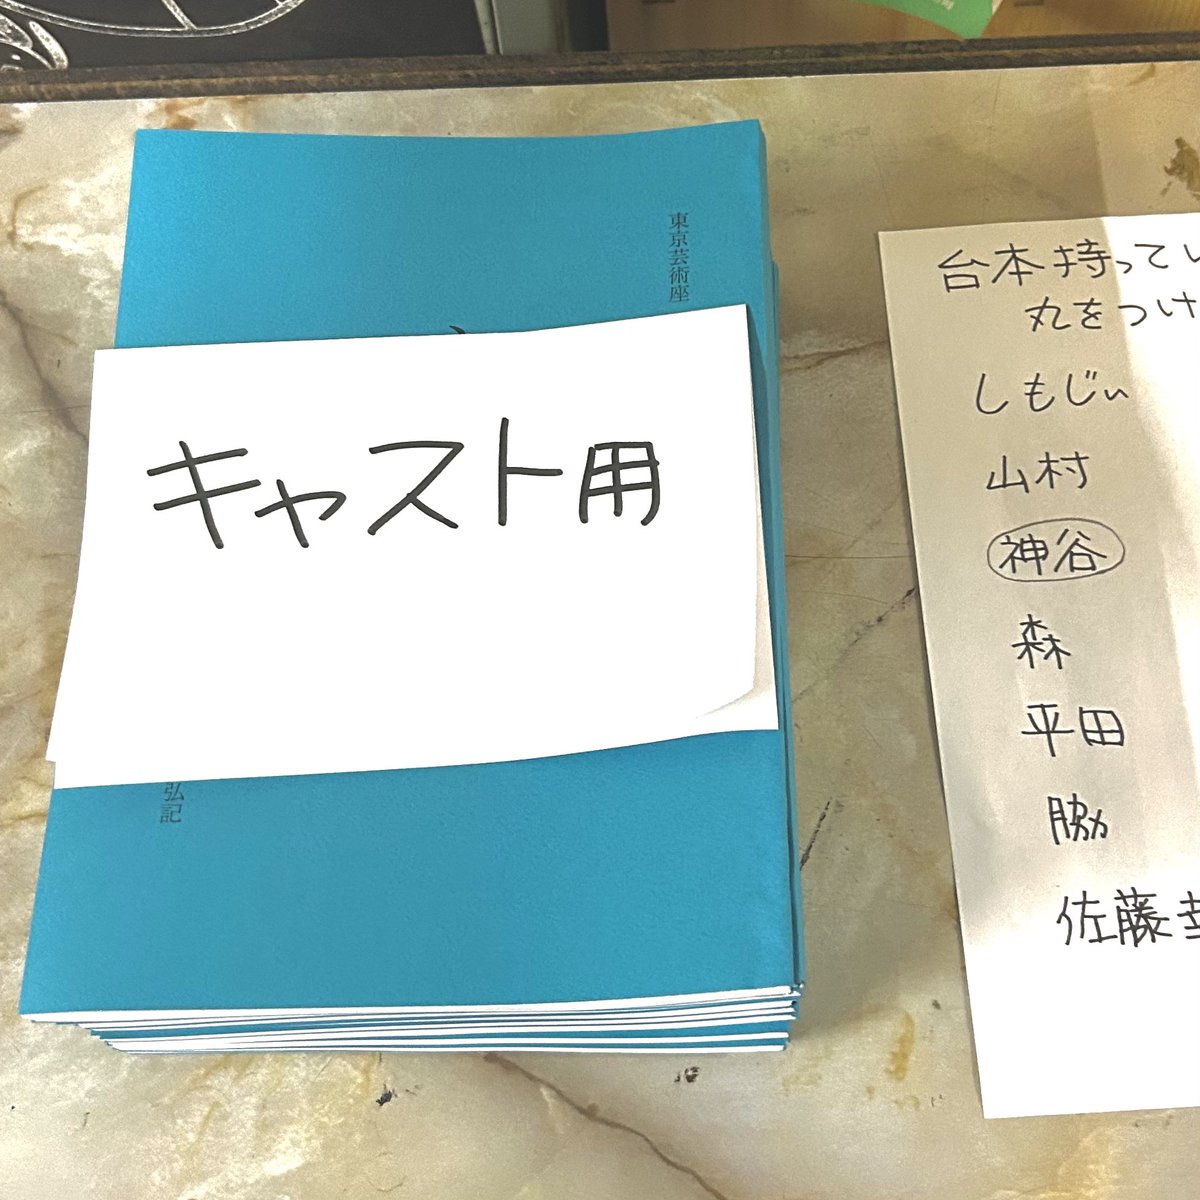 東京芸術座
キャスト用
弘記
台本持ってい
丸をつけ
しもじぃ
山村
神谷
森
平田
脇
佐藤